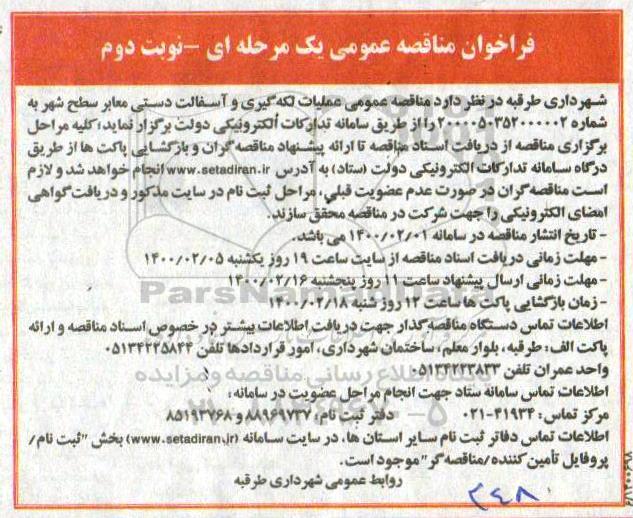 فراخوان مناقصه عمومی یک مرحله ای -نوبت دوم
شهرداری طرقبه در نظر دارد مناقصه عمومی عملیات لکه گیری و آسفالت دستی معابر سطح شهر به
شماره ۲۰۰۰۰۵۰۳۵۲۰۰۰۰۰۲ را از طریق سامانه تدارکات الکترونیکی دولت برگزار نماید؛ کلیه مراحل
برگزاری مناقصه از دریافت اسناد مناقصه تا ارائه پیشنهاد مناقصه گران و بازگشایی پاکت ها از طریق
درگاه سامانه تدارکات الکترونیکی دولت (ستاد) به آدرس www.setadiran.ir انجام خواهد شد و لازم
است مناقصه گران در صورت عدم عضویت قبلی، مراحل ثبت نام در سایت مذکور و دریافت گواهی
امضای الکترونیکی را جهت شرکت در مناقصه محقق سازند.
- تاریخ انتشار مناقصه در سامانه ۱۴۰۰/۰۲/۰۱ می باشد.
- مهلت زمانی دریافت اسناد مناقصه از سایت ساعت ۱۹ روز یکشنبه ۱۴۰۰/۰۲/۰۵
- مهلت زمانی ارسال پیشنهاد ساعت ۱۱ روز پنجشنبه ۱۴۰۰/۰۲/۱۶
- زمان بازگشایی پاکت ها ساعت ۱۲ روز شنبه ۱۴۰۰/۰۲/۱۸
اطلاعات تماس دستگاه مناقصه گذار جهت دریافت اطلاعات بیشتر در خصوص اسناد مناقصه و ارائه
پاکت الف: طرقبه، بلوار معلم، ساختمان شهرداری، امور قراردادها تلفن ۰۵۱۳۴۲۲۵۸۴۴
واحد عمران تلفن ۰۵۱۳۴۲۲۳۸۳۳
اطلاعات تماس سامانه ستاد جهت انجام مراحل عضویت در سامانه:
مرکز تماس: ۴۱۹۳۴-۰۲۱ دفتر ثبت نام: ۸۸۹۶۹۷۳۷ و ۸۵۱۹۳۷۶۸
اطلاعات تماس دفاتر ثبت نام سایر استان ها، در سایت سامانه (www.setadiran.ir) بخش "ثبت نام/
پروفایل تأمین کننده/مناقصه گر" موجود است.
روابط عمومی شهرداری طرقبه
۲۴۸
ParsNamadData
پایگاه اطلاع رسانی مناقصه و مزایده